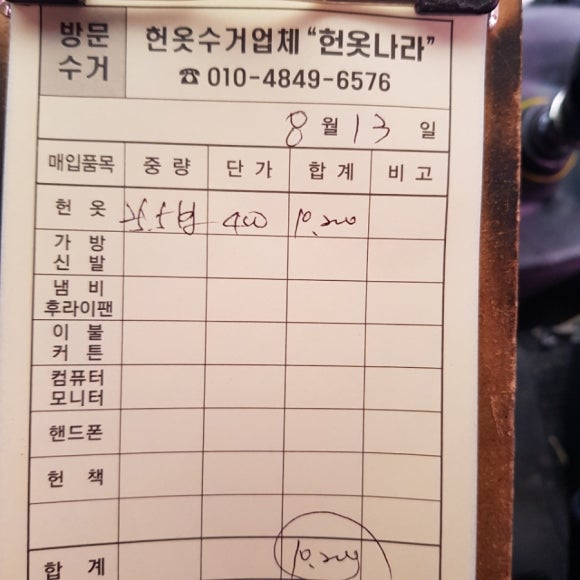 방문
수거
헌옷수거업체 "헌옷나라"
☎ 010-4849-6576
8월 13 일
매입품목 중 량 단 가 합 계 비 고
헌 옷 25.5 400 10,200
가 방
신 발
냄 비
후라이팬
이 불
커 튼
컴퓨터
모니터
핸드폰
헌 책
합 계 10,200